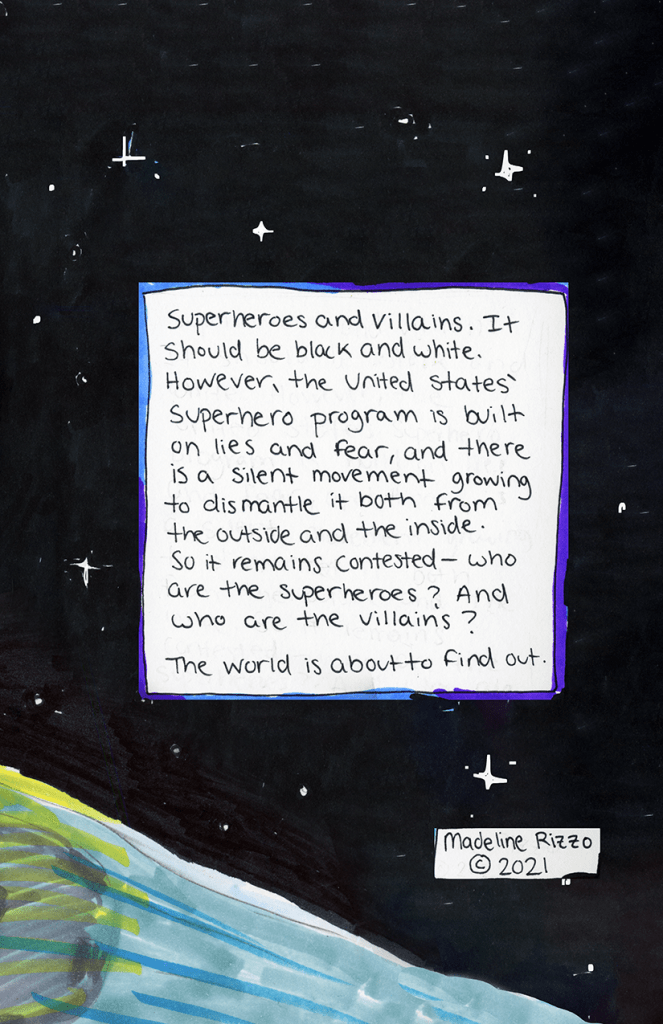 Superheroes and Villains. It
should be black and white.
However, the United States`
Superhero program is built
on lies and fear, and there
is a silent movement growing
to dismantle it both from
the outside and the inside.
So it remains contested — who
are the superheroes? And
who are the villains?
The world is about to find out.
Madeline Rizzo
© 2021